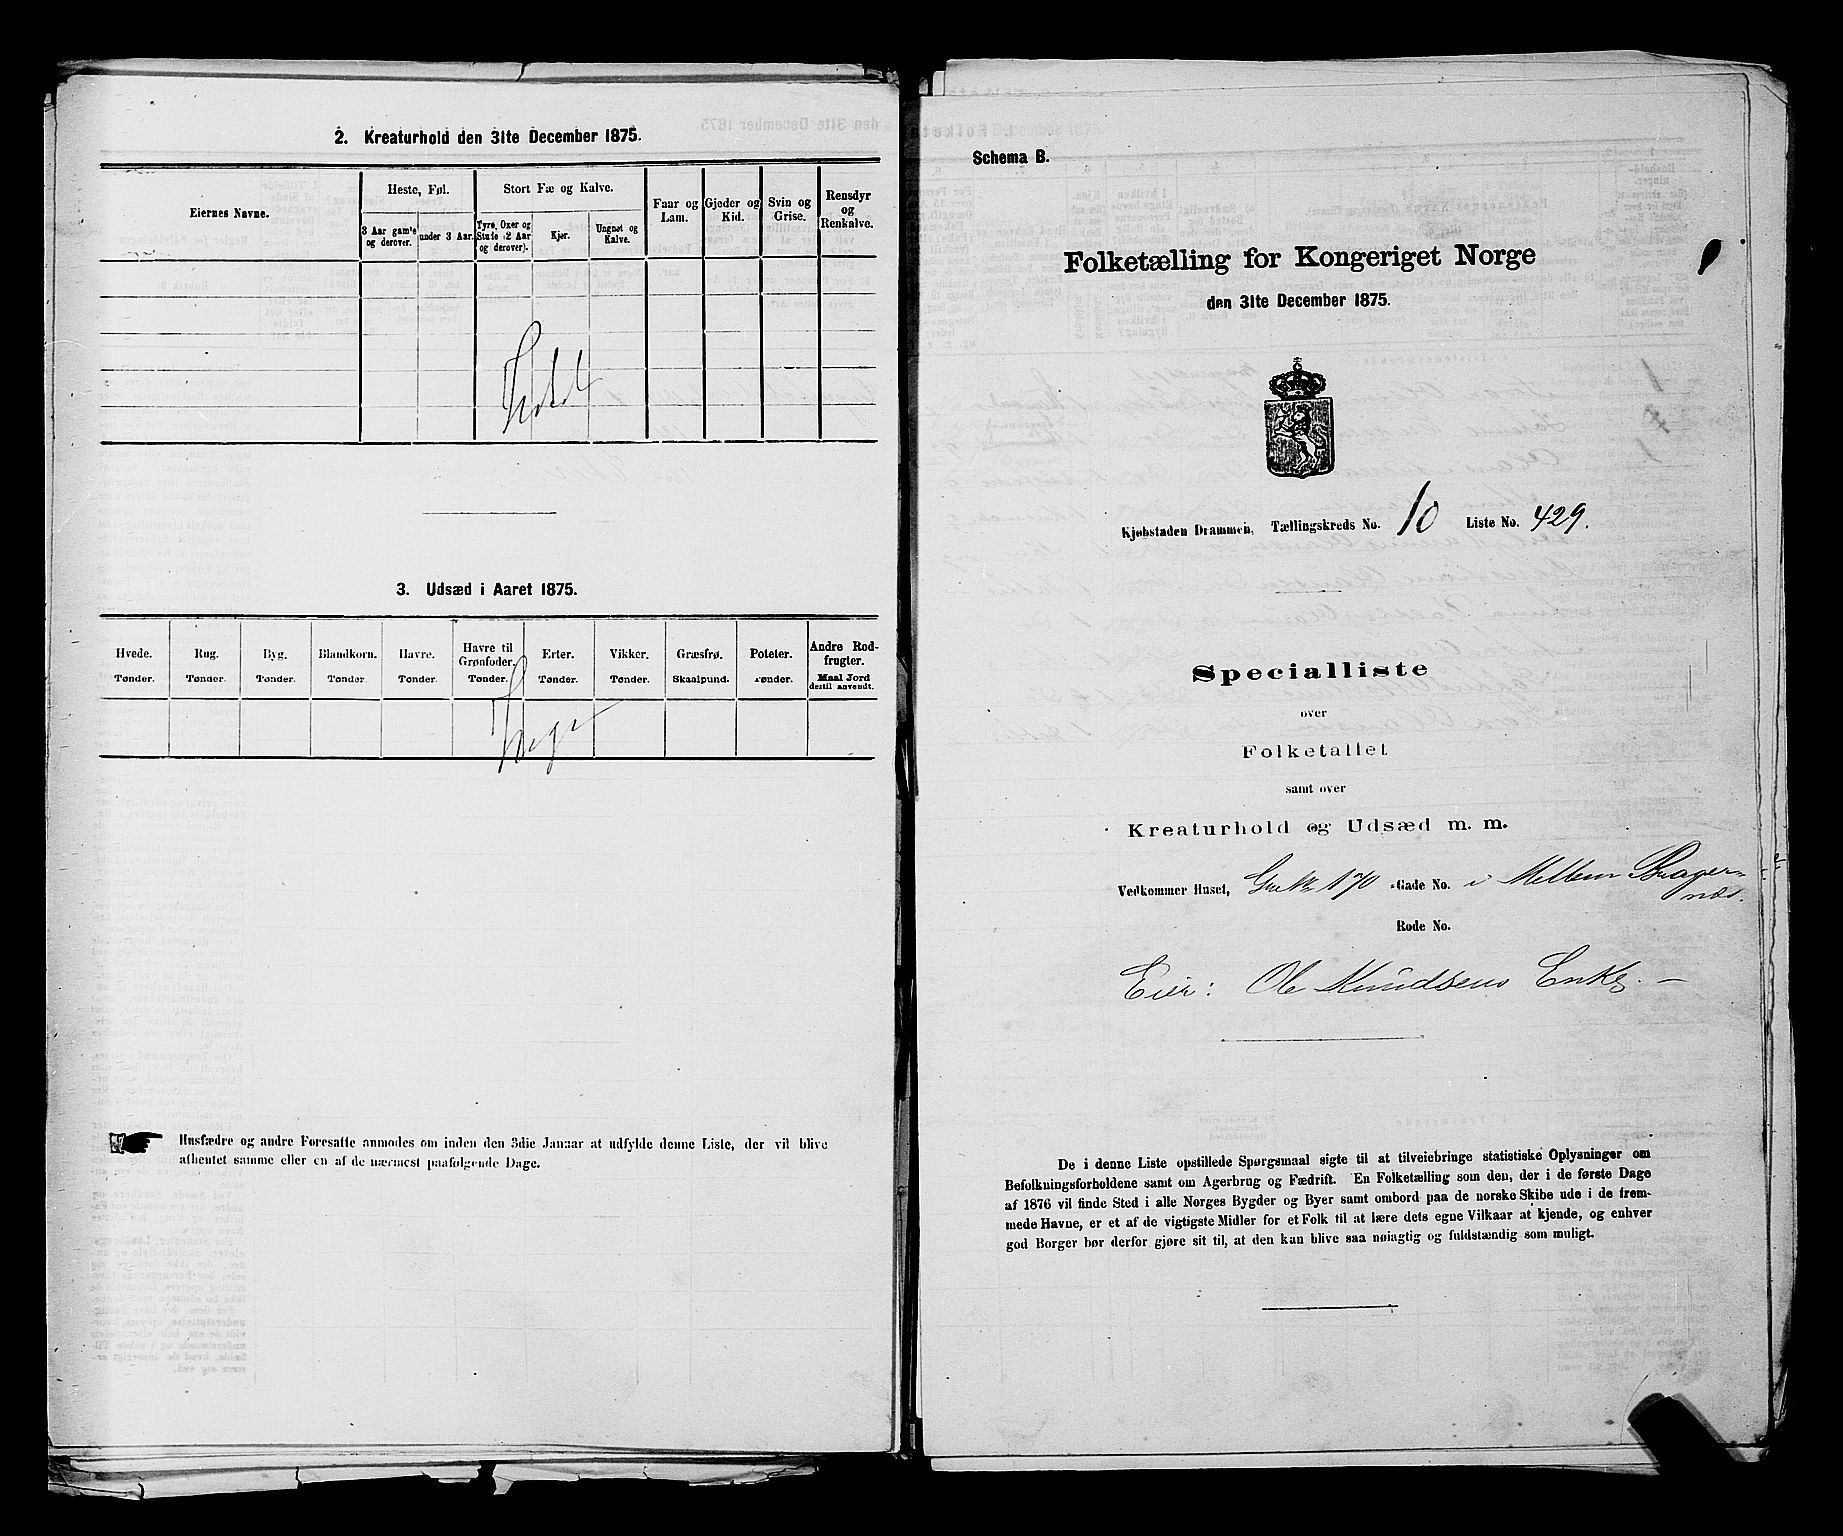 2. Kreaturhold den 31te December 1875.
Eiernes Navne.
Heste, Føl.
3 Aar gaml'e og derover.
under 3 Aar.
Stort Fæ og Kalve.
Tyre, Oxer og Stude (2 Aar og derover).
Kjør.
Ungnøt og Kalve.
Faar og Lam.
Gjeder og Kid.
Svin og Grise.
Rensdyr og Renkalve.
3. Udsæd i Aaret 1875.
Hvede. Rug. Byg. Blandkorn. Havre. Havre til Grønfoder. Erter. Vikker. Græsfrø. Poteter. Andre Rodfrugter.
Tønder. Tønder. Tønder. Tønder. Tønder. Tønder. Tønder. Tønder. Skaalpund. Tønder. Maal Jord dertil anvendt.
Husfædre og andre Foresatte anmodes om inden den 3die Januar at udfylde denne Liste, der vil blive
afhentet samme eller en af de nærmest paafølgende Dage.
Schema B.
Folketælling for Kongeriget Norge
den 31te December 1875.
Kjøbstaden Drammen, Tællingskreds No. 10 Liste No. 429.
Specialliste
over
Folketallet
samt over
Kreaturhold og Udsæd m. m.
Vedkommer Huset, 170 Gade No. i Mellem Bragernæs.
Rode No.
Eier: Ole Knudsens Enke. —
De i denne Liste opstillede Spørgsmaal sigte til at tilveiebringe statistiske Oplysninger om
Befolkningsforholdene samt om Agerbrug og Fædrift. En Folketælling som den, der i de første Dage
af 1876 vil finde Sted i alle Norges Bygder og Byer samt ombord paa de norske Skibe ude i de frem-
mede Havne, er et af de vigtigste Midler for et Folk til at lære dets egne Vilkaar at kjende, og enhver
god Borger bør derfor gjøre sit til, at den kan blive saa nøiagtig og fuldstændig som muligt.